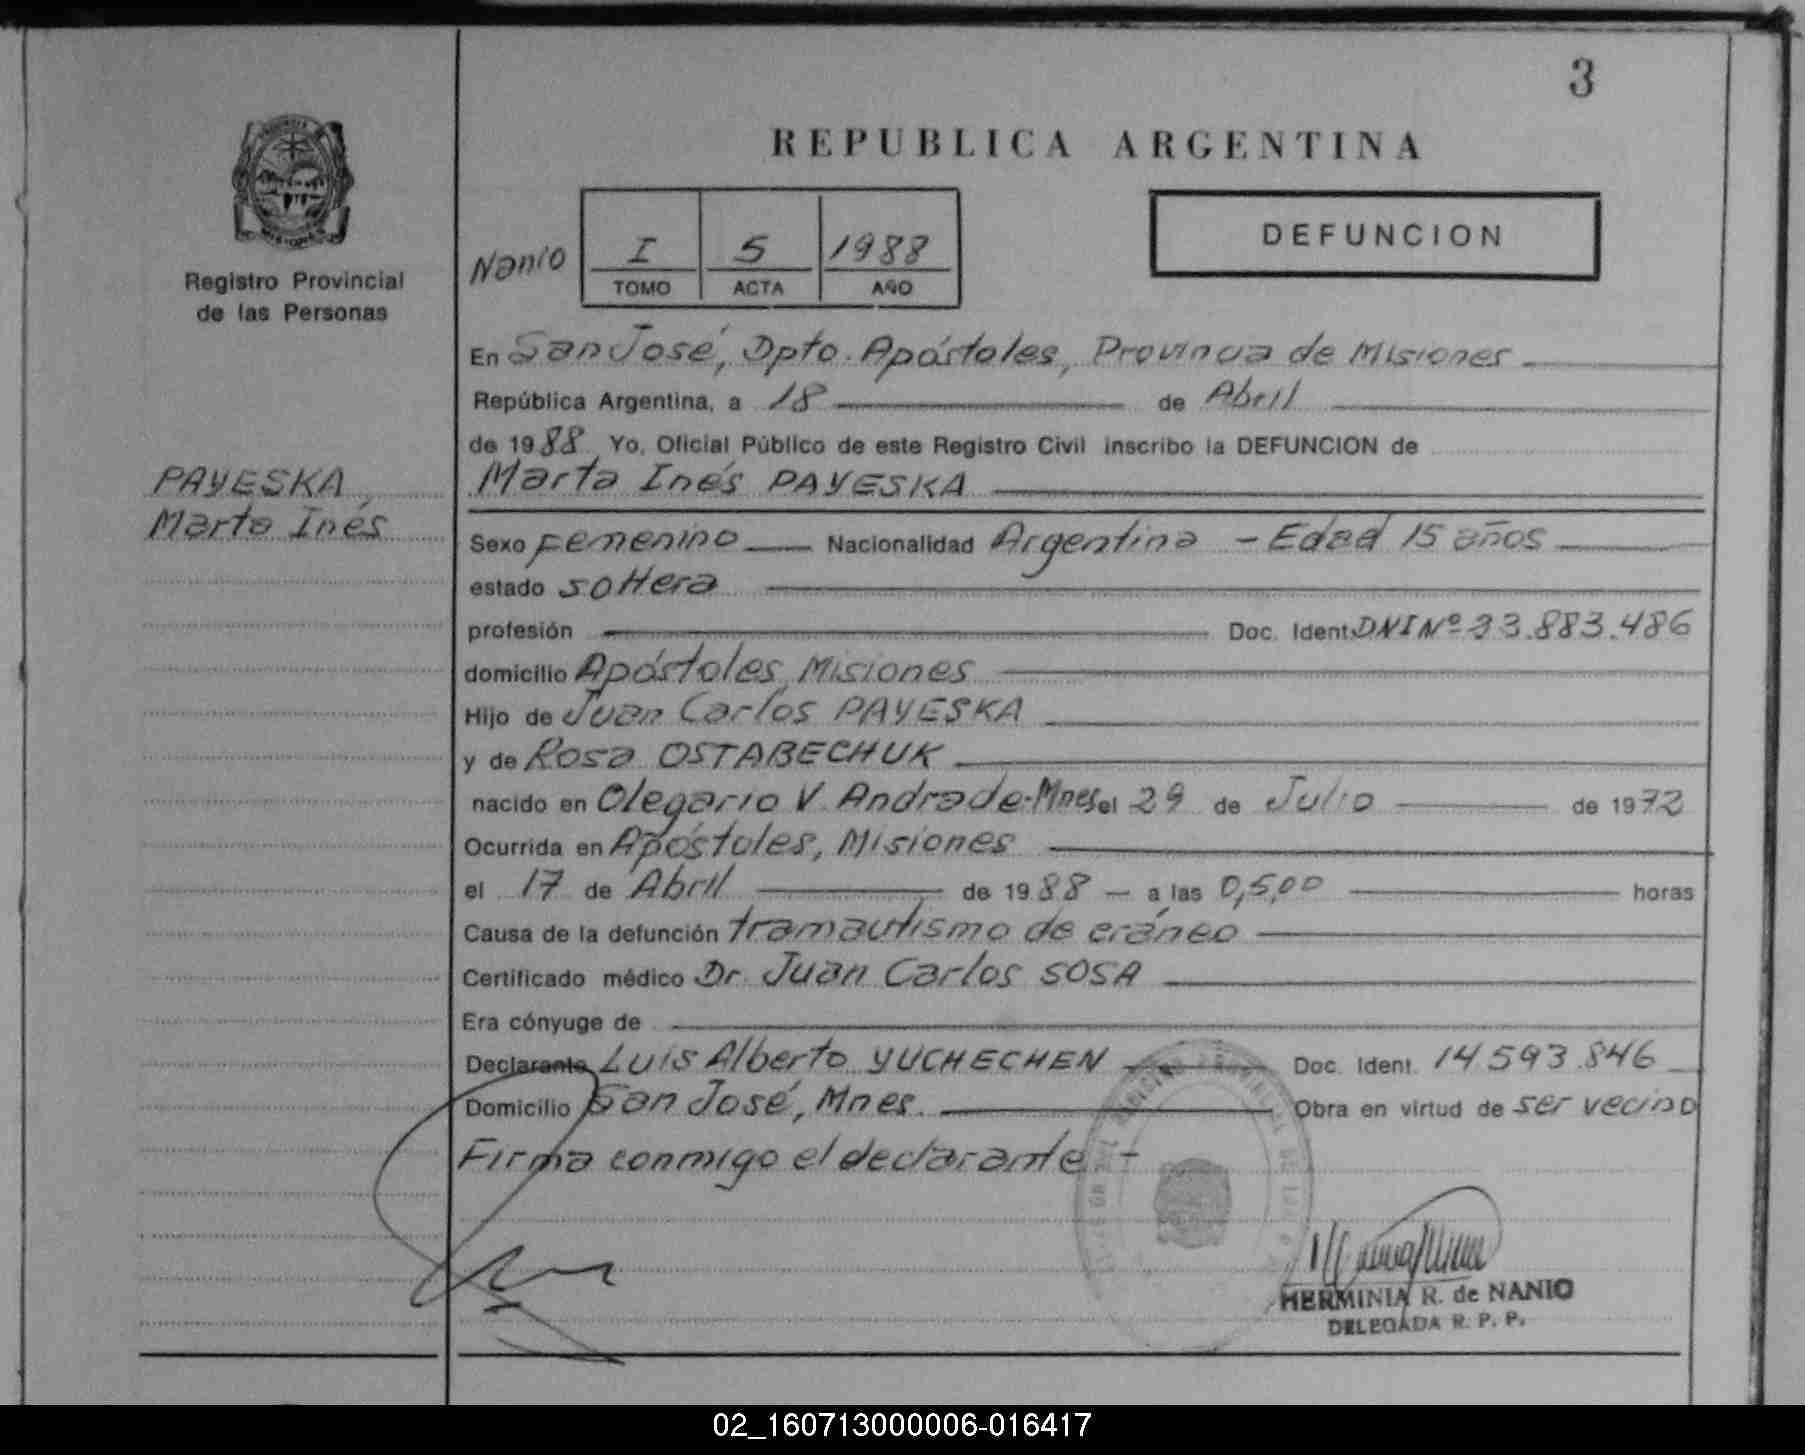 3
REPUBLICA ARGENTINA
DEFUNCION
Nanio
I 5 1988
TOMO ACTA AÑO
Registro Provincial
de las Personas
En San José, Dpto. Apóstoles, Provincia de Misiones
República Argentina, a 18 de Abril
de 1988 Yo, Oficial Público de este Registro Civil inscribo la DEFUNCION de
PAYESKA,
Marta Inés
Marta Inés PAYESKA
Sexo femenino Nacionalidad Argentina - Edad 15 años
estado soltera
profesión Doc. Ident. DNI Nº 33.883.486
domicilio Apóstoles, Misiones
Hijo de Juan Carlos PAYESKA
y de Rosa OSTABECHUK
nacido en Olegario V. Andrade-Mnes, el 29 de Julio de 1972
Ocurrida en Apóstoles, Misiones
el 17 de Abril de 1988 - a las 0,5,00 horas
Causa de la defunción tramautismo de cráneo
Certificado médico Dr. Juan Carlos SOSA
Era cónyuge de
Declarante Luis Alberto YUCHECHEN Doc. Ident. 14.593.846
Domicilio San José, Mnes. Obra en virtud de ser vecino
Firma conmigo el declarante -
HERMINIA R. de NANIO
DELEGADA R. P. P.
02_160713000006-016417